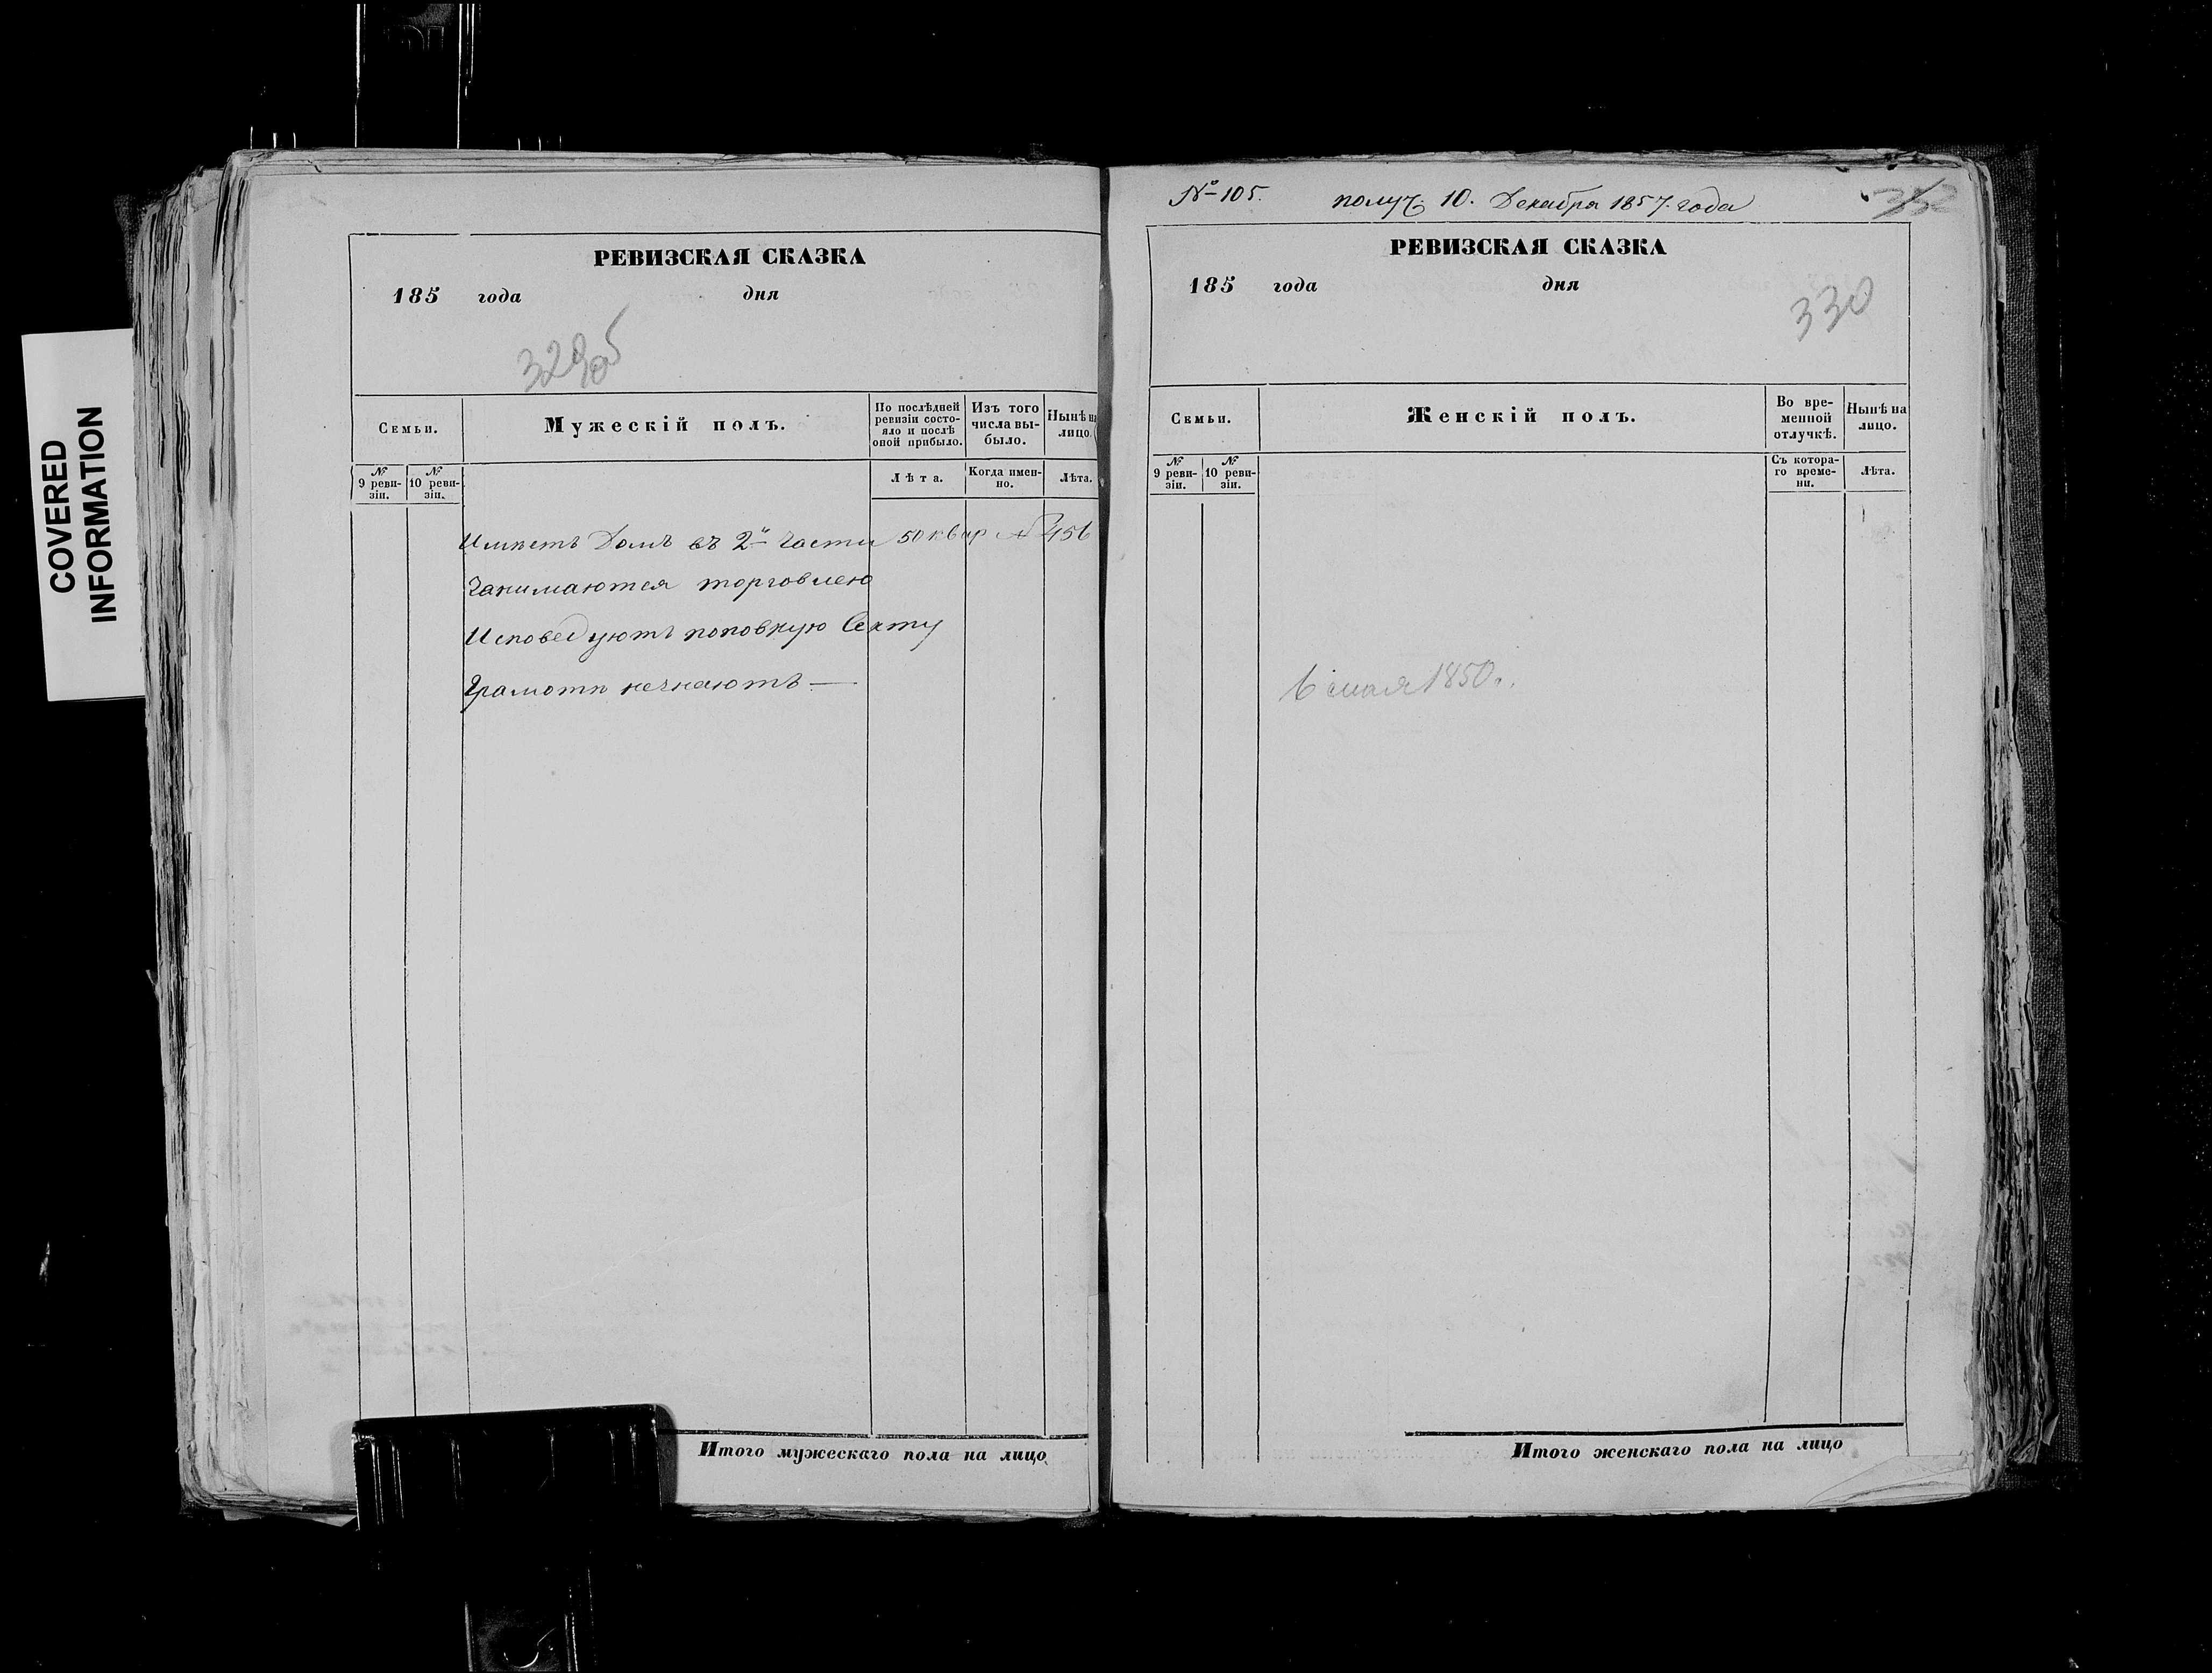 COVERED
INFORMATION
РЕВИЗСКАЯ СКАЗКА
185 года дня
329об
Семьи.
Мужескій полъ.
По послѣдней ревизіи состояло и послѣ оной прибыло.
Изъ того числа выбыло.
Нынѣ на лицо.
№ 9 ревизіи.
№ 10 ревизіи.
Лѣта.
Когда именно.
Лѣта.
Имѣетъ Домъ въ 2й Части 50 квар №456
Занимаются торговлею
Исповедуютъ поповскую Секту
Грамоти незнаютъ —
Итого мужескаго пола на лицо
№ 105. получ. 10. Декабря 1857. года
РЕВИЗСКАЯ СКАЗКА
185 года дня
330
Семьи.
Женскій полъ.
Во временной отлучкѣ.
Нынѣ на лицо.
№ 9 ревизіи.
№ 10 ревизіи.
Съ котораго времени.
Лѣта.
1850.
Итого женскаго пола на лицо